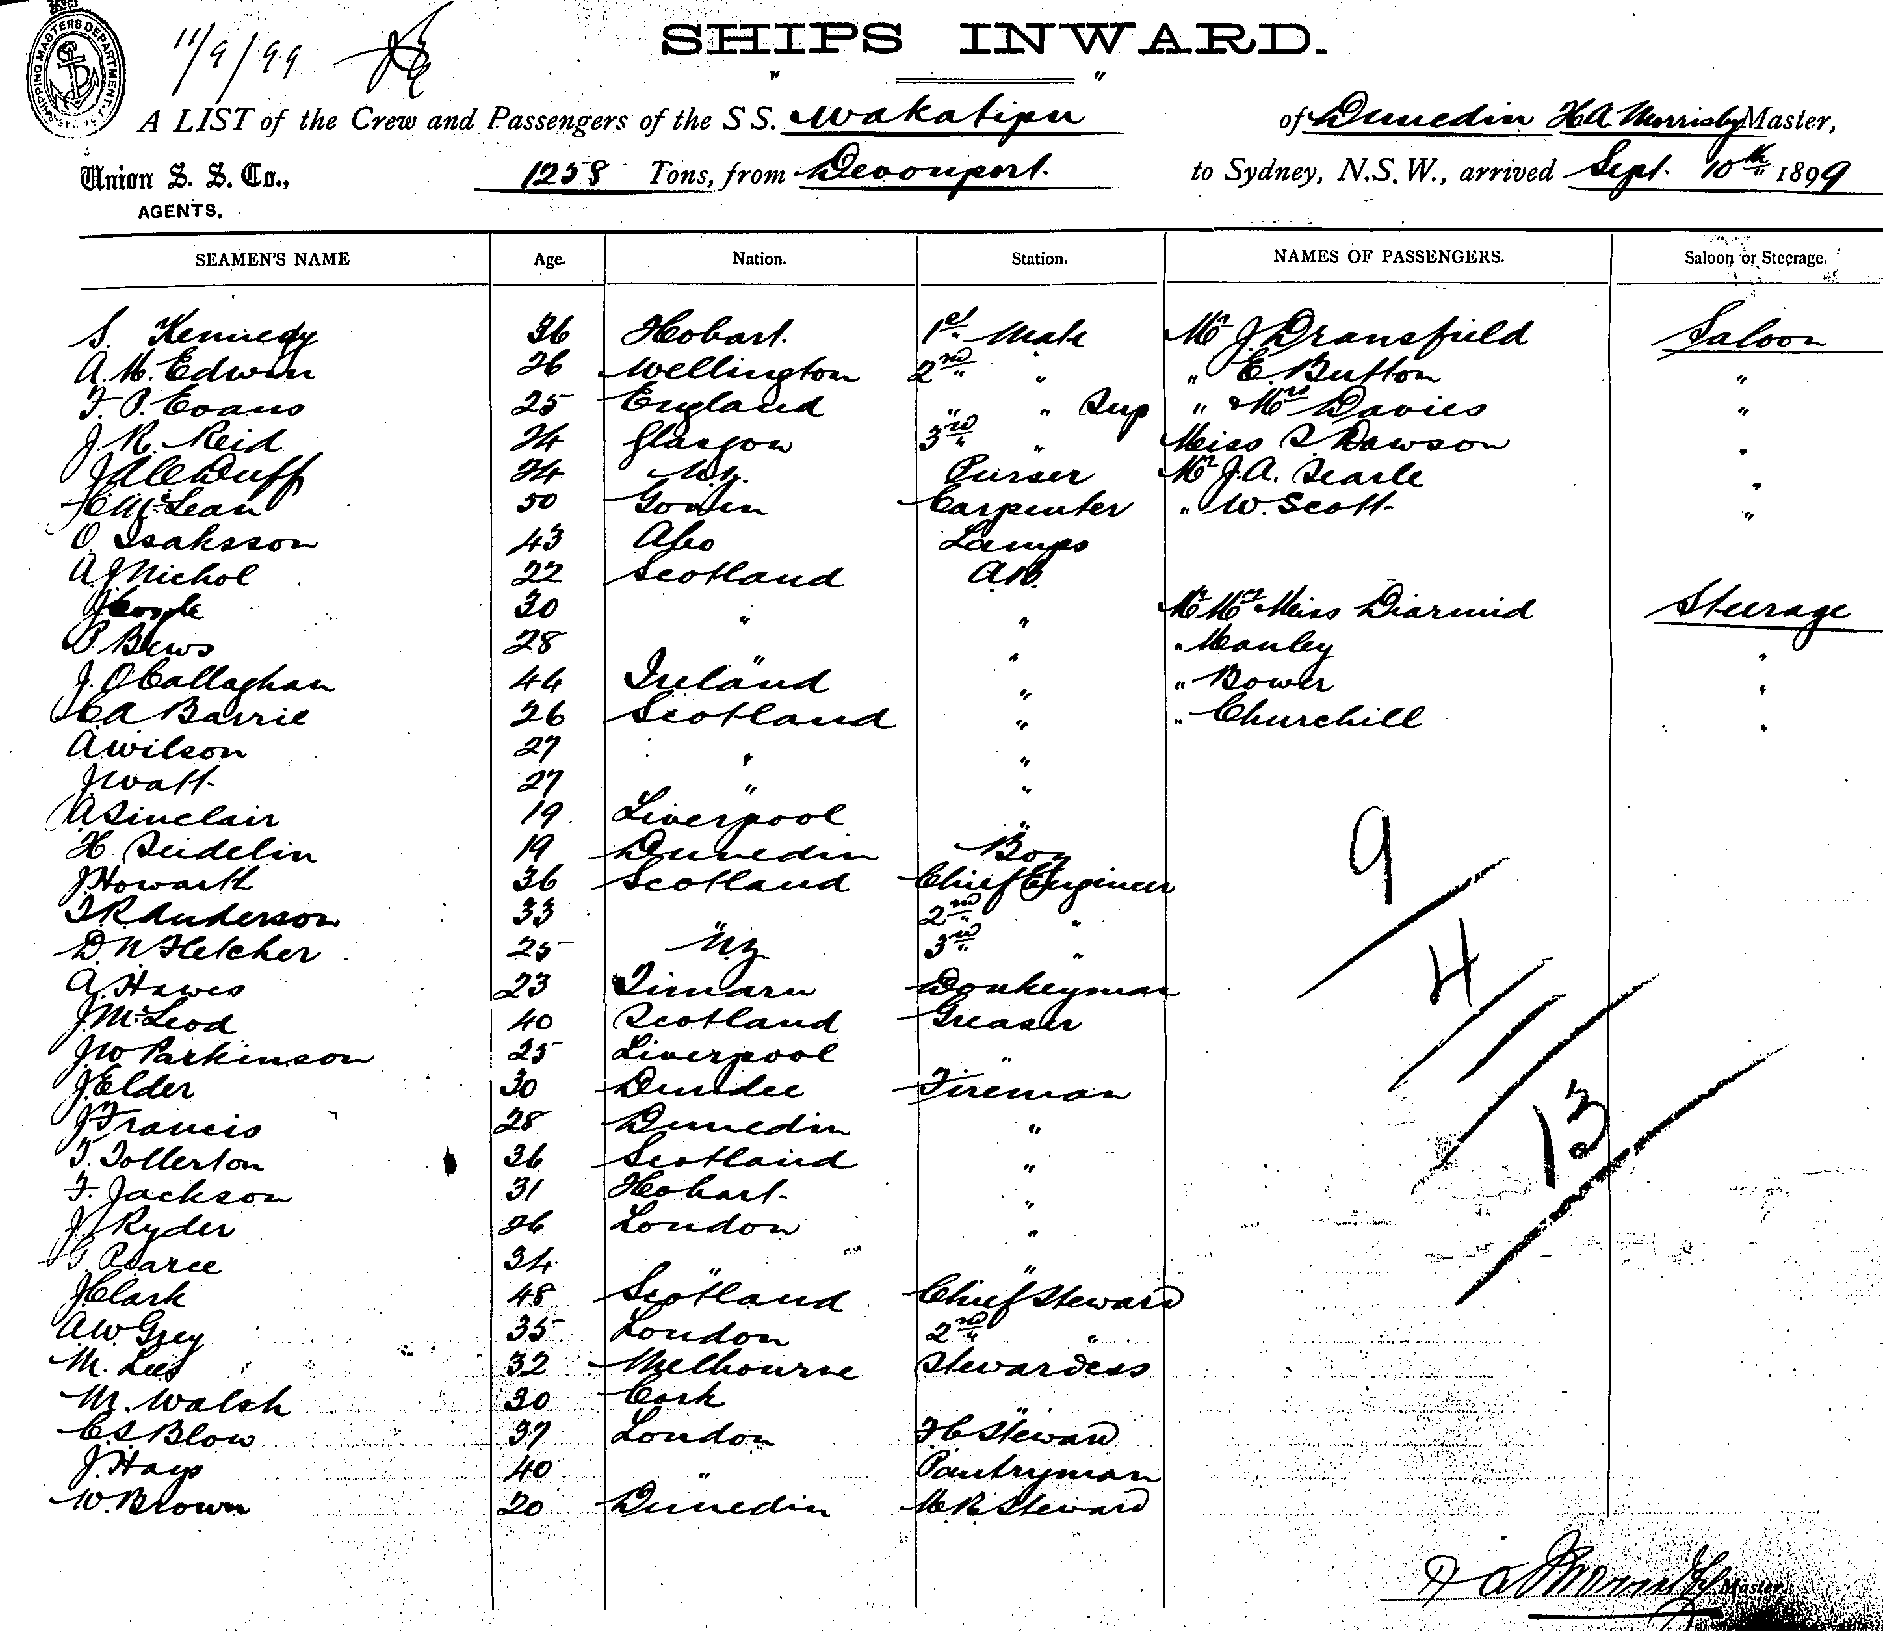 SHIPPING MASTERS DEPARTMENT
11/9/99
SHIPS INWARD.
A LIST of the Crew and Passengers of the S S. Wakatipu of Dunedin HA Morrisby Master,
Union S. S. Co., 1258 Tons, from Devonport. to Sydney, N.S.W., arrived Sept. 10th 1899
AGENTS.
SEAMEN'S NAME Age. Nation. Station. NAMES OF PASSENGERS. Saloon or Steerage.
S. Kennedy 36 Hobart. 1st Mate Mr J. Dransfield Saloon
A. M. Edwin 26 Wellington 2nd " " E. Button "
F. P. Evans 25 England " " Sup " & Mrs Davies "
J. R. Reid 24 Glasgow 3rd " Miss S. Dawson "
J A C Duff 24 N.Z. Purser Mr J. A. Searle "
McLean 50 Carpenter " W. Scott "
O. Isaksson 43 Abo Lamps
A J Nichol 22 Scotland A.B.
J Coyle 30 " " Mr Mrs Miss Diarmid Steerage
P Bews 28 " " " Manley "
J. O'Callaghan 44 Ireland " " Bower "
C A Barrie 26 Scotland " " Churchill "
A Wilson 27 " "
J Watt 27 " "
A Sinclair 19 Liverpool "
H. Seidelin 19 Dunedin Boy 9
J Howarth 36 Scotland Chief Engineer
T R Anderson 33 " 2nd "
D. N Fletcher 25 N.Z. 3rd " 4
A. Hawes 23 Timaru Donkeyman
J. McLeod 40 Scotland Greaser
J W Parkinson 25 Liverpool "
J Elder 30 Dundee Fireman
J Francis 28 Dunedin " 13
T. Tollerton 36 Scotland "
F. Jackson 31 Hobart. "
J. Ryder 26 London "
G. Pearce 34 " "
J Clark 48 Scotland Chief Steward
A W Grey 35 London 2nd "
M. Lees 32 Melbourne Stewardess
M. Walsh 30 Cork "
C S Blow 37 London F C Steward
J. Hays 40 " Pantryman
W. Brown 20 Dunedin M R Steward
Master